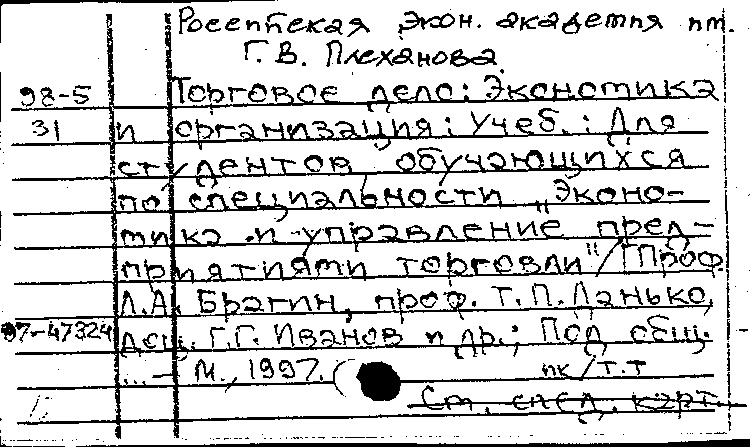 Российская экон. академия им.
Г.В. Плеханова.
98-5 Торговое дело: Экономика
31 и организация: Учеб.: Для
студентов, обучающихся
по специальности „Эконо-
мика и управление пред-
приятиями торговли"/[Проф.
Л.А. Брагин, проф. Т.П. Данько,
97-47324 доц. Г.Г. Иванов и др.; Под общ.
... — М., 1997. (
пк/т.т
См. след. карт.